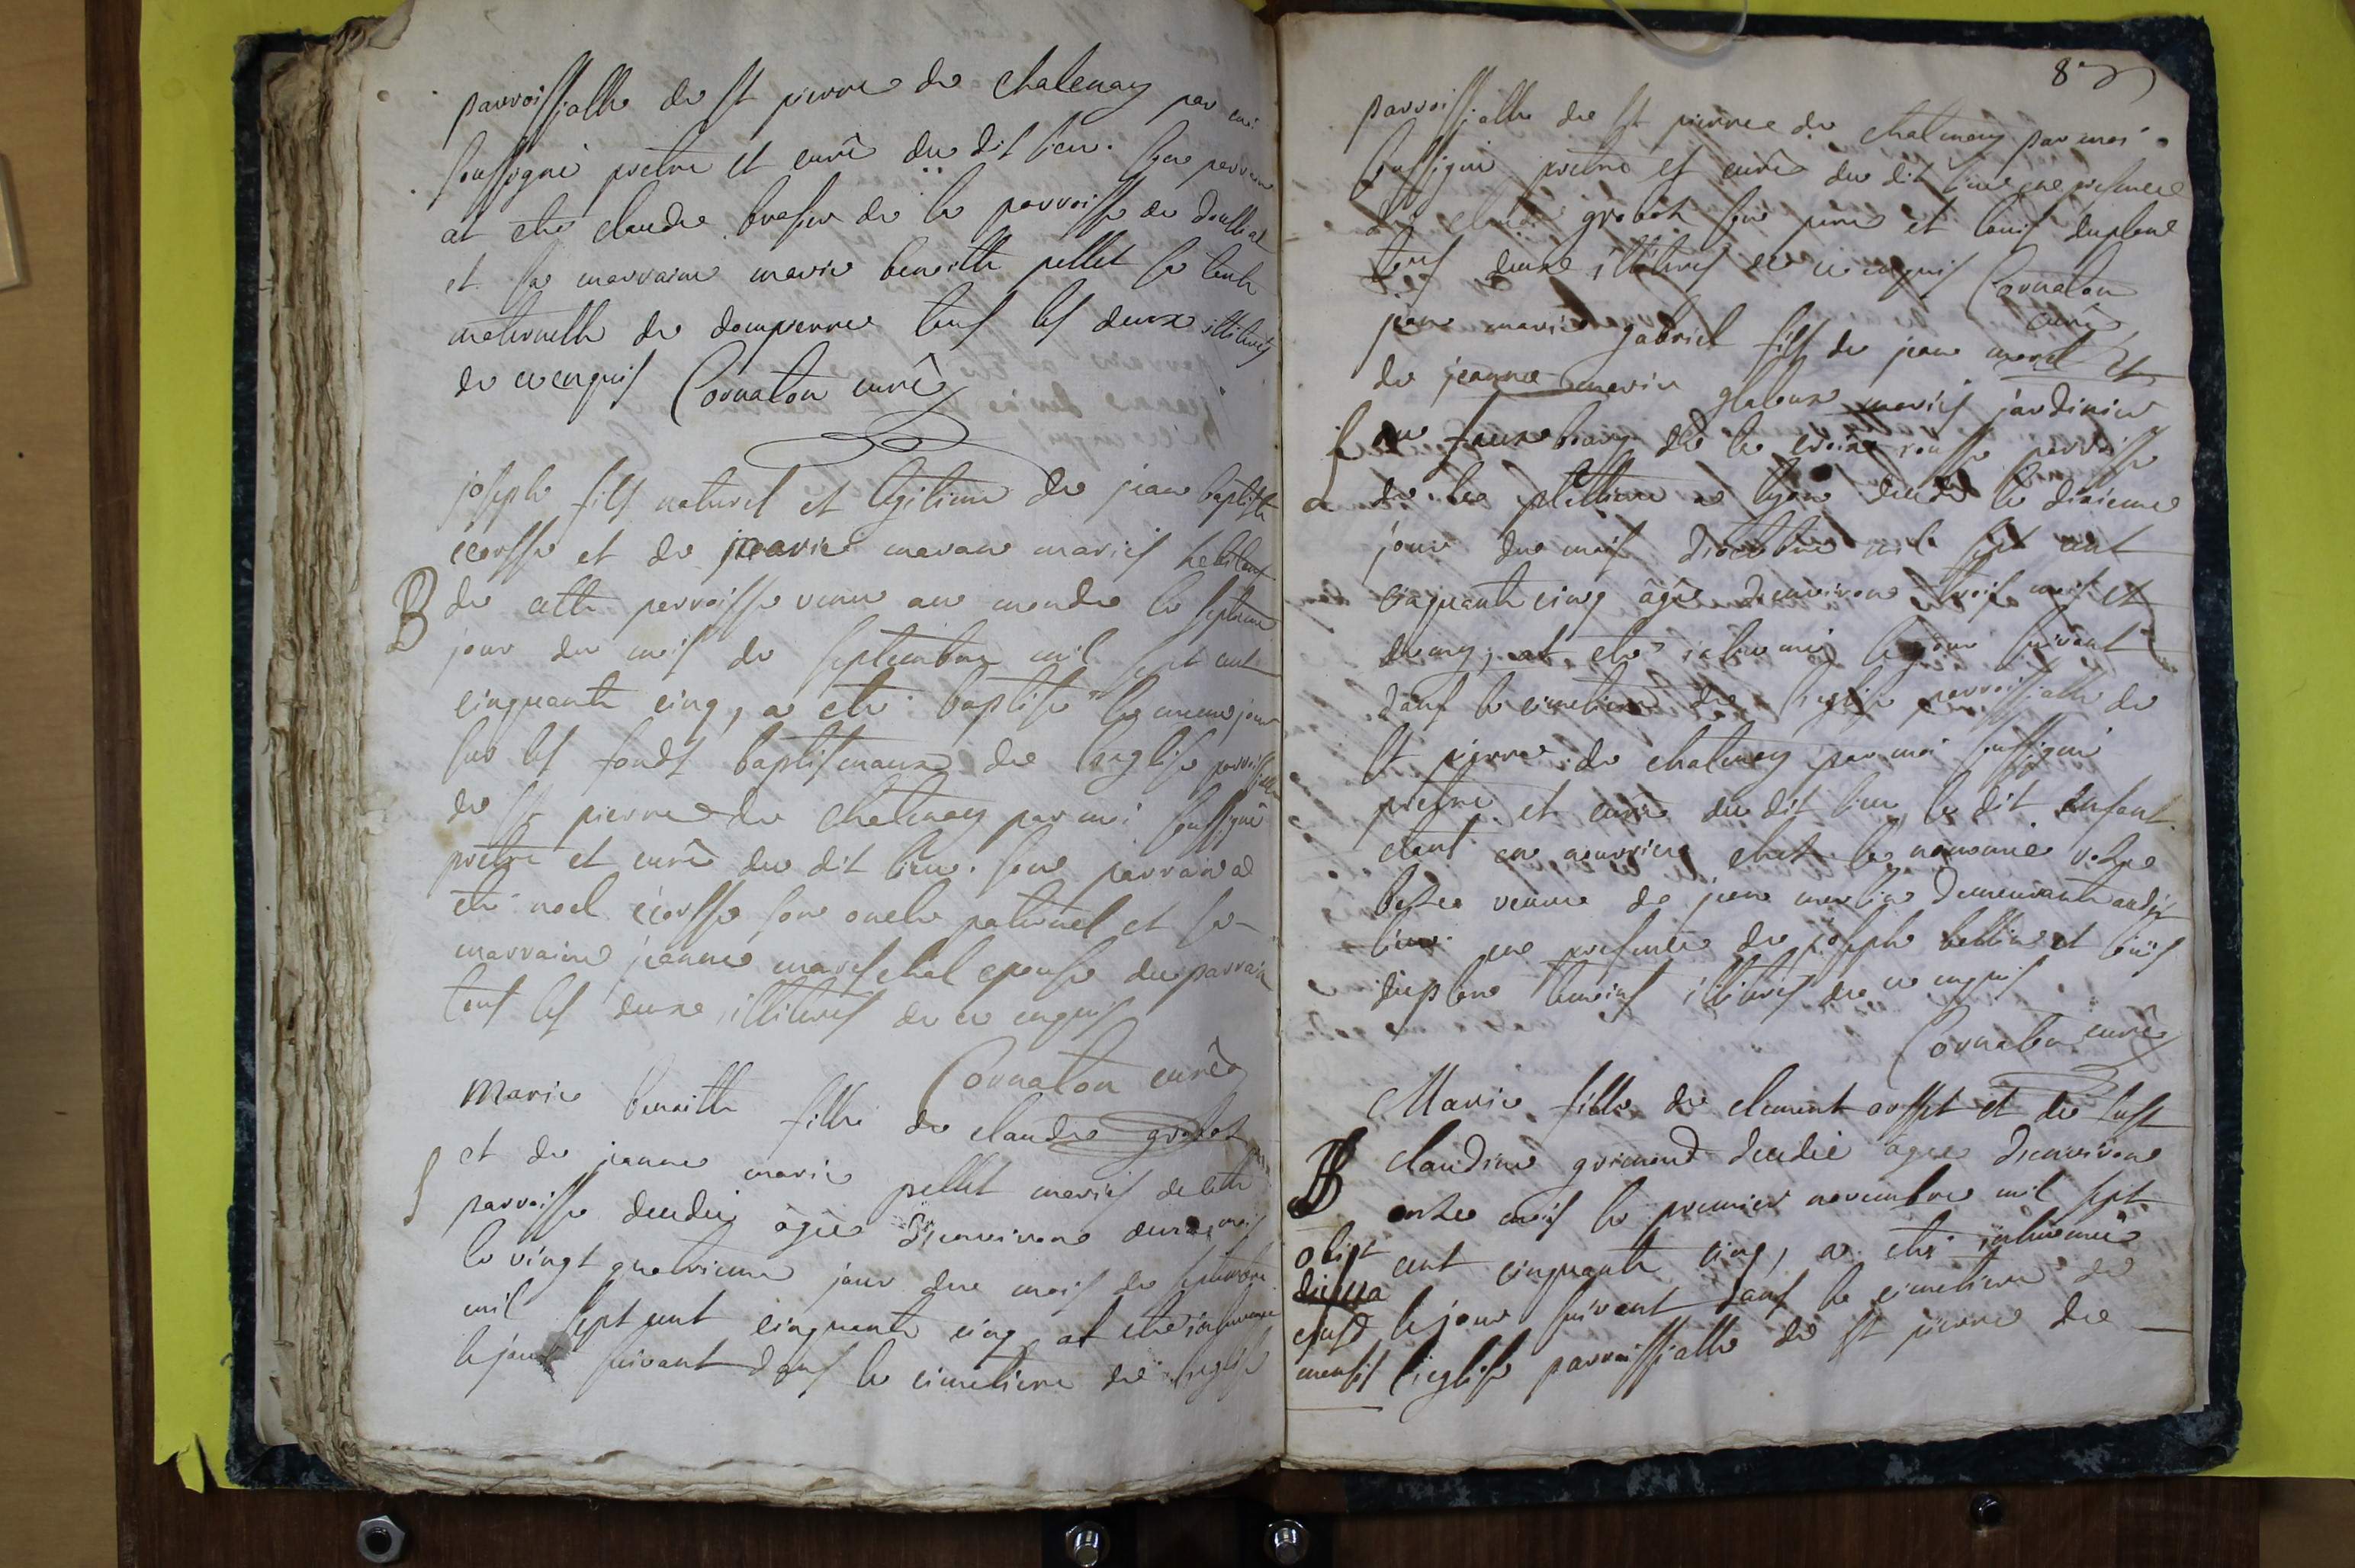 parroissialle de st pierre de chatenay par moi
soussigné pretre et curé du dit lieu. son parrain
at eté claude de la parroisse de
et sa marraine marie benoitte pellet sa tante
maternelle de dompierre tous les deux illiterés
de ce enquis Cornaton curé
joseph fils naturel et legitime de jean baptiste
ecosse et de marie mariés habitants
B de cette parroisse venu au monde le septieme
jour du mois de septembre mil sept cent
cinquante cinq, a eté baptisé le meme jour
sur les fonds baptismaux de l'eglise parroissialle
de st pierre de chatenay par moi soussigné
pretre et curé du dit lieu. son parrain at
eté noel ecosse son oncle paternel et sa
marraine jeanne mareschal epouse du parrain
tous les deux illiterés de ce enquis
Cornaton curé
Marie benoitte fille de claude grobot
et de jeanne marie pellet mariés de cette
S parroisse decedée agée d'environ deux mois
le vingt quatrieme jour du mois de septembre
mil sept cent cinquante cinq, at eté inhumée
le jour suivant dans le cimetiere de l'eglise
87
parroissialle de st pierre de chatenay par moi
soussigné pretre et curé du dit lieu en presence
de claude grobot son pere et louis duplan
tous deux illiterés de ce enquis Cornaton
curé
jean marie gabriel fils de jean morel et
de jeanne marie mariés jardinier
au fauxbourg de la croix rousse parroisse
de la a lyon decedé le dixieme
jour du mois d'octobre mil sept cent
cinquante cinq agé d'environ trois mois et
demy, at eté inhumé le jour suivant
dans le cimetiere de l'eglise parroissialle de
st pierre de chatenay par moi soussigné
pretre et curé du dit lieu, le dit enfant
etant en nourrice chez la nommée
veuve de jean demeurante audit
lieu en presence de joseph et louis
duplan temoins illiterés de ce enquis
Cornaton curé
Marie fille de clement et de
claudine grimond decedée agée d'environ
onze mois le premier novembre mil sept
obiit cent cinquante cinq, a eté inhumée
ejusd le jour suivant dans le cimetiere de
mensis l'eglise parroissialle de st pierre de